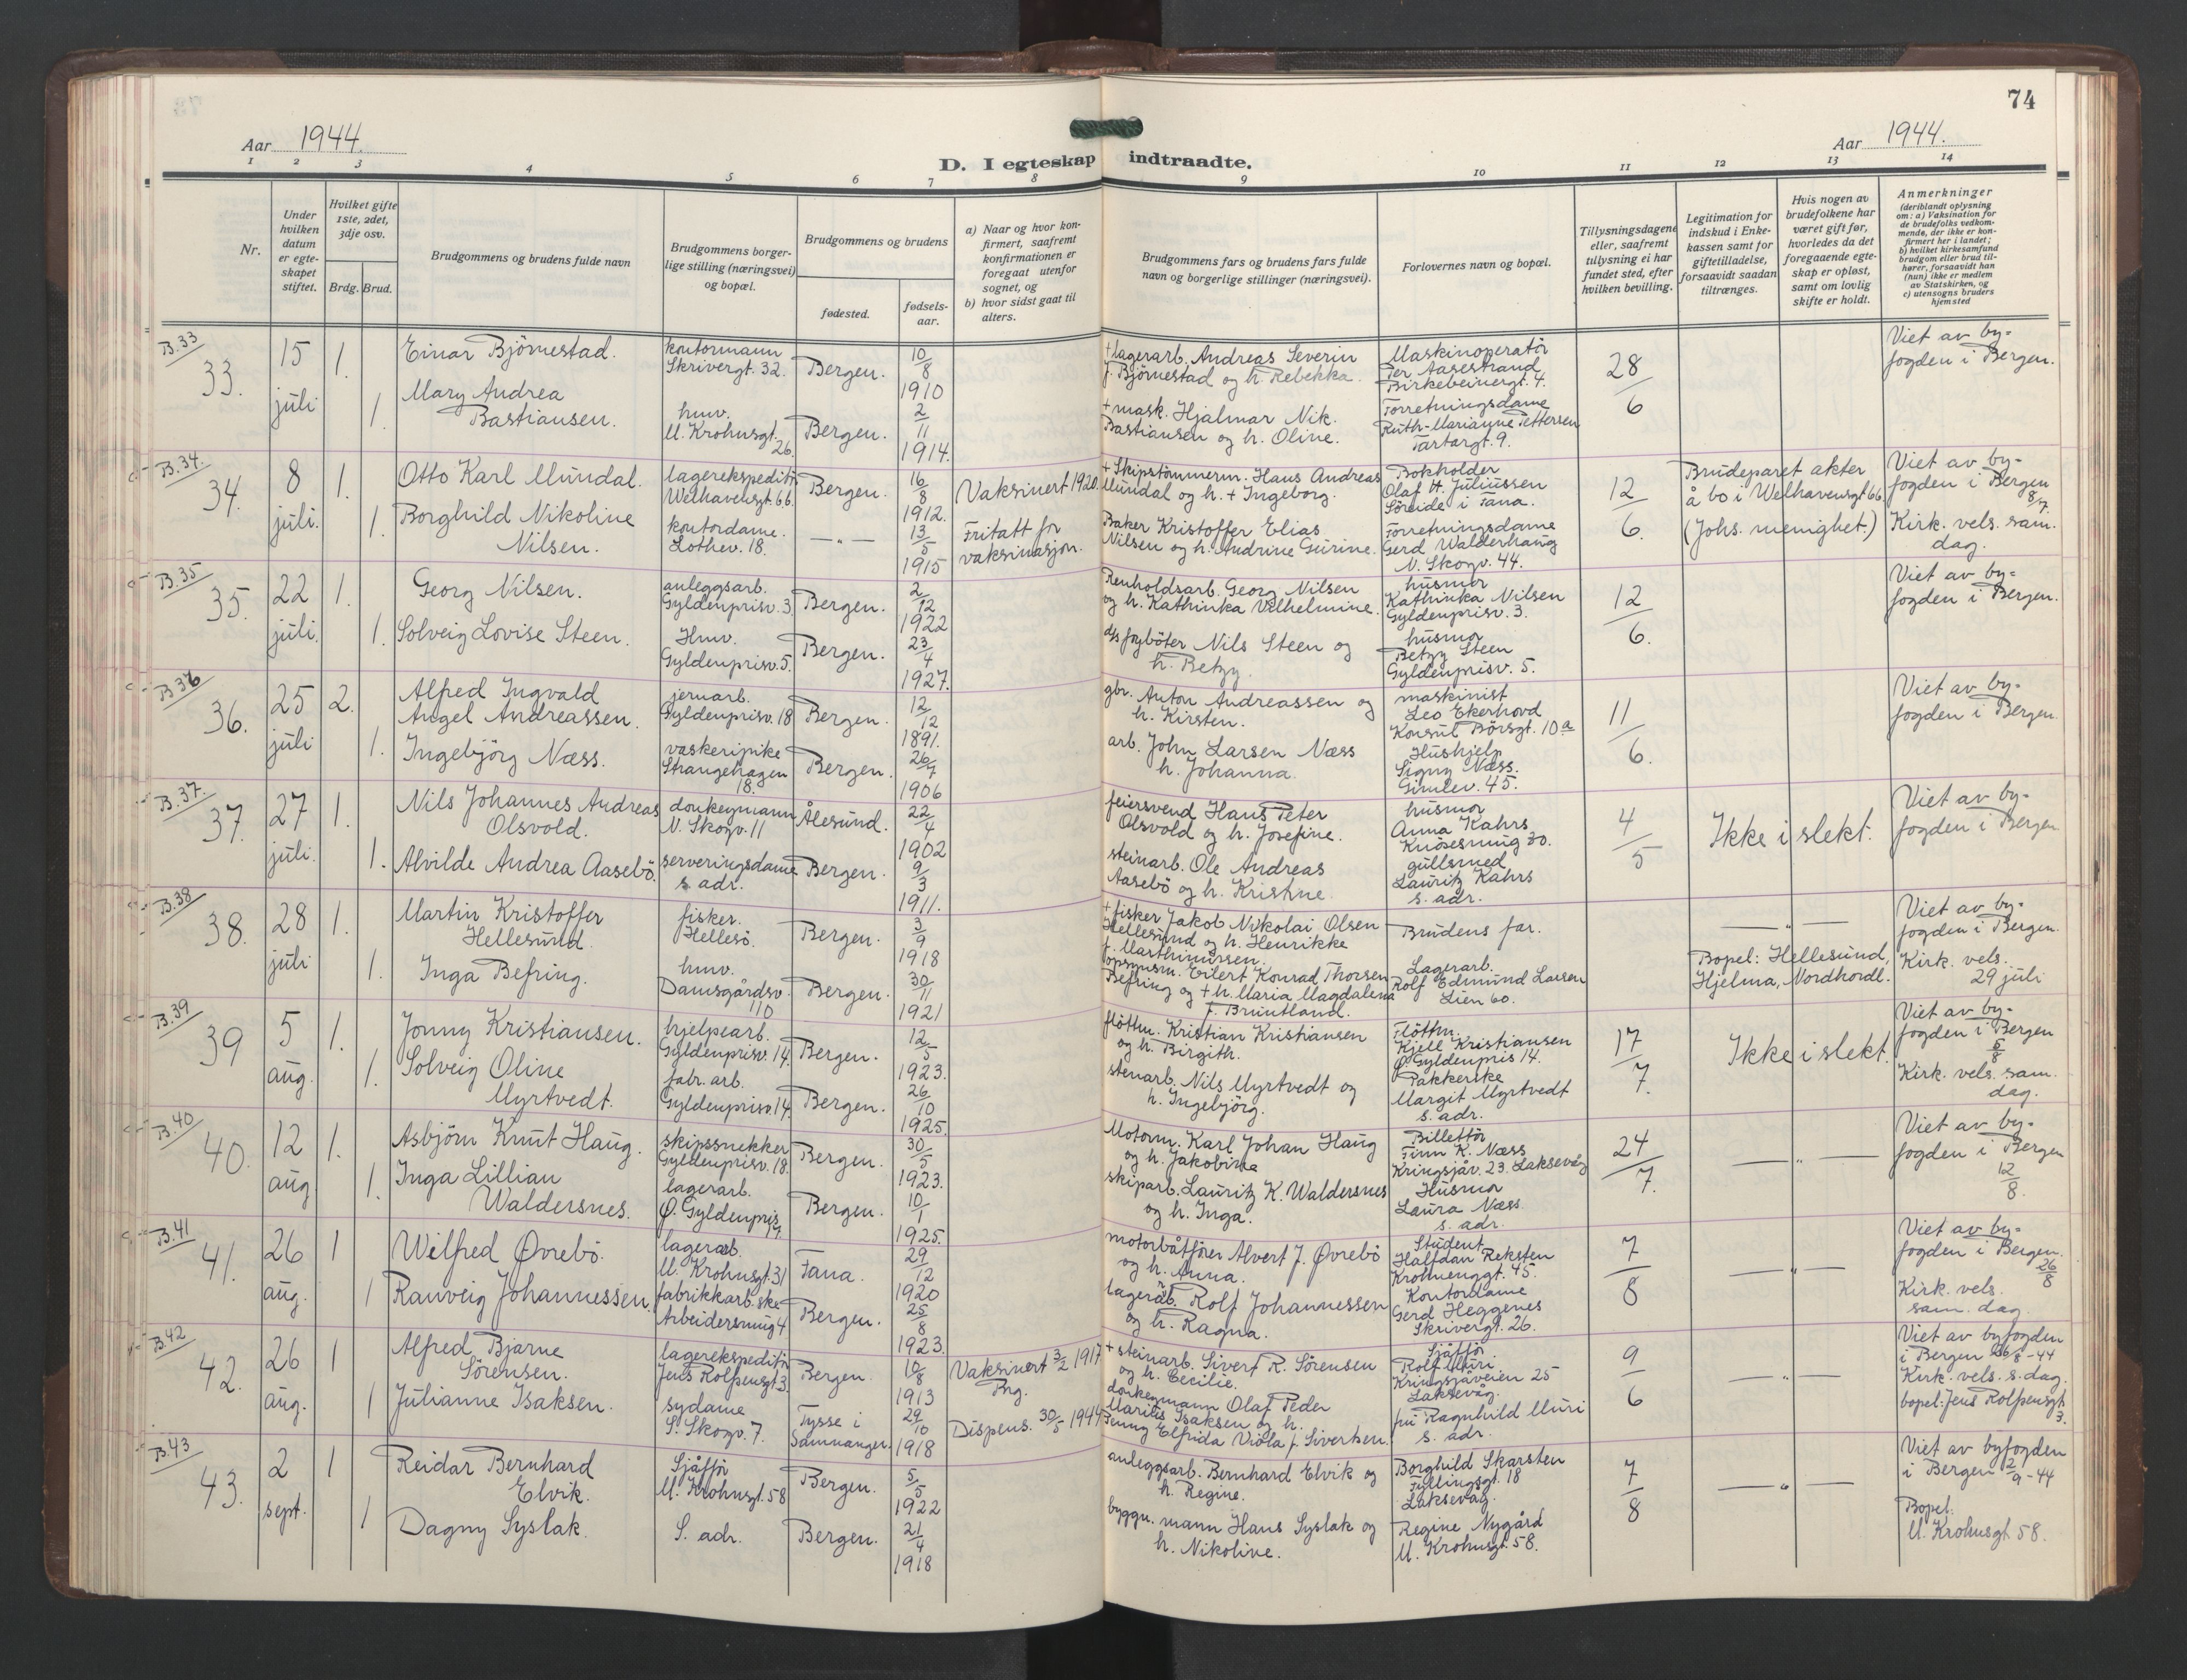 74
Aar 1944.
Aar 1944.
D. I egteskap indtraadte.
1 2 3 4 5 6 7 8 9 10 11 12 13 14
Nr.
Under hvilken datum er egte-skapet stiftet.
Hvilket gifte 1ste, 2det, 3dje osv.
Brdg. Brud.
Brudgommens og brudens fulde navn
Brudgommens borger-lige stilling (næringsvei) og bopæl.
Brudgommens og brudens
fødested.
fødsels-aar.
a) Naar og hvor kon-firmert, saafremt konfirmationen er foregaat utenfor sognet, og
b) hvor sidst gaat til alters.
Brudgommens fars og brudens fars fulde navn og borgerlige stillinger (næringsvei).
Forlovernes navn og bopæl.
Tillysningsdagene eller, saafremt tillysning ei har fundet sted, efter hvilken bevilling.
Legitimation for indskud i Enke-kassen samt for giftetilladelse, forsaavidt saadan tiltrænges.
Hvis nogen av brudefolkene har været gift før, hvorledes da det foregaaende egte-skap er opløst, samt om lovlig skifte er holdt.
Anmerkninger
(deriblandt oplysning om: a) Vaksination for de brudefolks vedkom-mende, der ikke er kon-firmert her i landet; b) hvilket kirkesamfund brudgom eller brud til-hører, forsaavidt han (hun) ikke er medlem av Statskirken, og c) utensogns bruders hjemsted
B.33
33. 15 juli 1.
Einar Björnestad.
kontormann
Skrivergt. 32.
Bergen.
10/8 1910
+ lagerarb. Andreas Severin
J. Björnestad og h. Rebekka.
Maskinoperatör
Per Aasestrand
Birkebeinergt. 4.
28/6
Viet av by-
fogden i Bergen.
1.
Mary Andrea
Bastiansen.
huw.
M. Krohnsgt.
26.
Bergen.
2/11 1914.
+ mask. Hjalmar Nik.
Bastiansen og h. Oline.
Forretningsdame
Ruth-Marianne Pettersen
Tartargt. 9.
B.34.
34. 8 juli. 1.
Otto Karl Mundal.
lagerekspeditör
Welhavensgt 66
Bergen.
16/8 1912.
Vaksinert 1920.
+ Skipstömmerm. Hans Andreas
Mundal og h. + Ingeborg.
Bokholder
Olaf H. Juliussen
Söreide i Fana.
12/6.
Brudeparet akter
å bo i Welhavensgt 66
(Johs. menighet.)
Viet av by-
fogden i Bergen
8/7.
Kirk. vels. sam.
dag.
1.
Borghild Nikoline
Nilsen.
kontordame.
Lothev. 18.
— " —
13/5 1915
Fritatt for
vaksinasjon.
Baker Kristoffer Elias
Nilsen og h. Andrine Gurine.
Forretningsdame
Gerd Walderhaug
N. Skogv. 44.
B.35
35. 22 juli. 1.
Georg Nilsen.
anleggsarb.
Gyldenprisv. 3
Bergen.
2/12 1922
Renholdsarb. Georg Nilsen
og h. Kathinka Vilhelmine.
husmor
Kathinka Nilsen
Gyldenprisv. 3.
12/6.
Viet av by-
fogden i Bergen.
1.
Solveig Lovise Steen.
Huw.
Gyldenprisv. 5.
Bergen.
23/4 1927.
Nils Steen og
h. Betzy.
husmor
Betzy Steen
Gyldenprisv. 5.
B 36
36. 25 juli 2.
Alfred Ingvald
Angel Andreassen.
jernarb.
Gyldenprisv. 18
Bergen.
12/12 1891.
gbr. Anton Andreassen og
h. Kirsten.
maskinist
Leo Ekerhovd
Konsul Börsgt. 10 a
11/6.
Viet av by-
fogden i Bergen.
1.
Ingebjörg Næss.
vaskeripike
Strangehagen
18.
Bergen.
26/7 1906
arb. John Larsen Næss
h. Johanna.
Hushjelp
Signy Næss.
Gimlev. 45.
B.37.
37. 27 juli. 1.
Nils Johannes Andreas
Olsvold.
donkeymann
N. Skogv. 11
Ålesund.
22/4 1902
feiersvend Hans Peter
Olsvold og h. Josefine.
husmor
Anna Kahrs
Knösesmug 30.
4/5
Ikke i slekt.
Viet av by-
fogden i Bergen
1.
Alvilde Andrea Aasebö.
serveringsdame
s. adr.
Bergen.
9/3 1911.
steinarb. Ole Andreas
Aasebö og h. Kristine.
gullsmed
Lauritz Kahrs
s. adr.
B.38
38. 28 juli 1.
Martin Kristoffer
Hellesund.
fisker.
Hellesö.
Bergen.
3/9 1918
+ fisker Jakob Nikolai Olsen
Hellesund og h. Henrikke
f. Marthinussen.
Brudens far.
— " —
Viet av by-
fogden i Bergen.
1.
Inga Befring.
huw.
Damsgårdsv.
110
Bergen.
30/11 1921
opsynsm. Eilert Konrad Thorsen
Befring og + h. Maria Magdalena
f. Bruntland.
Lagerarb.
Rolf Edmund Larsen
Lien 60.
Bopel: Hellesund,
Hjelma, Nordhordl.
Kirk. vels.
29 juli
B.39
39 5 aug. 1.
Jonny Kristiansen.
hjelpearb.
Gyldenprisv. 14.
Bergen.
12/5 1923.
flöttm. Kristian Kristiansen
og h. Birgith.
Flöttm.
Kjell Kristiansen
Ø. Gyldenpris 14.
17/7.
Ikke i slekt.
Viet av by-
fogden i Bergen
5/8
Kirk. vels. sam.
dag.
1.
Solveig Oline
Myrtvedt.
fabr. arb.
Gyldenprisv. 14.
Bergen.
26/10 1925.
stenarb. Nils Myrtvedt og
h. Ingebjörg.
Pakkerske
Margit Myrtvedt
s. adr.
B.40
40. 12 aug 1.
Asbjörn Knut Haug.
skipssnekker
Gyldenprisv. 18.
Bergen.
30/5 1923.
Motorm. Karl Johan Haug
og h. Jakobina
Billettör
Finn K. Næss
Kringsjåv. 23. Laksevåg
24/7.
— " —
Viet av by-
fogden i Bergen
12/8.
1.
Inga Lillian
Waldersnes.
lagerarb.
Ø. Gyldenpris
Bergen.
10/1 1925.
skiparb. Lauritz K. Waldersnes
og h. Inga.
Husmor
Laura Næss
s. adr.
B.41
41. 26 aug. 1
Wilfred Øvrebö.
lagerarb.
M. Krohnsgt. 31
Fana.
29/12 1920
motorbåtförer Alvert J. Øvrebö
og h. Anna.
Student
Halfdan Reksten
Krohnenggt. 45.
7/8
— " —
Viet av by-
fogden i Bergen.
26/8
Kirk. vels.
sam. dag.
1
Ranveig Johannessen.
fabrikkarb.ske
Arbeidersmug 4
Bergen.
25/8 1923.
lagerarb. Rolf Johannessen
og h. Ragna.
Kontordame
Gerd Heggenes
Skrivergt. 26.
B.42
42. 26 aug. 1
Alfred Bjarne
Sörensen.
lagerekspeditör
Jens Rolfsensgt 3.
Bergen.
10/8 1913
Vaksinert 3/2 1917
Brg.
+ steinarb. Sivert R. Sörensen
og h. Cecilie.
Sjåfför
Rolf Muri
Kringsjåveien 25
Laksevåg.
9/6
— " —
Viet av byfogden
i Bergen 26/8-44
Kirk. vels. s. dag.
bopel: Jens Rolfsensgt
3.
1
Julianne Isaksen.
sydame
S. Skogv. 7.
Tysse i
Samnanger.
29/10 1918
Dispens. 30/5 1944
donkeymann Olaf Peder
Marius Isaksen og h.
Jenny Elfrida Viola f. Sivertsen.
fru Ragnhild Muri
s. adr.
B.43
43. 2 sept. 1
Reidar Bernhard
Elvik.
Sjåfför
M. Krohnsgt. 58
Bergen.
5/5 1922
anleggsarb. Bernhard Elvik og
h. Regine.
Borghild Skarsten
Fyllingsgt. 18
Laksevåg.
7/8
— " —
Viet av byfogden
i Bergen 2/9-44
1
Dagny Syslak.
S. adr.
Bergen.
21/4 1918
byggn. mann Hans Syslak og
h. Nikoline.
Regine Nygård
M. Krohnsgt. 58.
Bopel:
M. Krohnsgt 58.